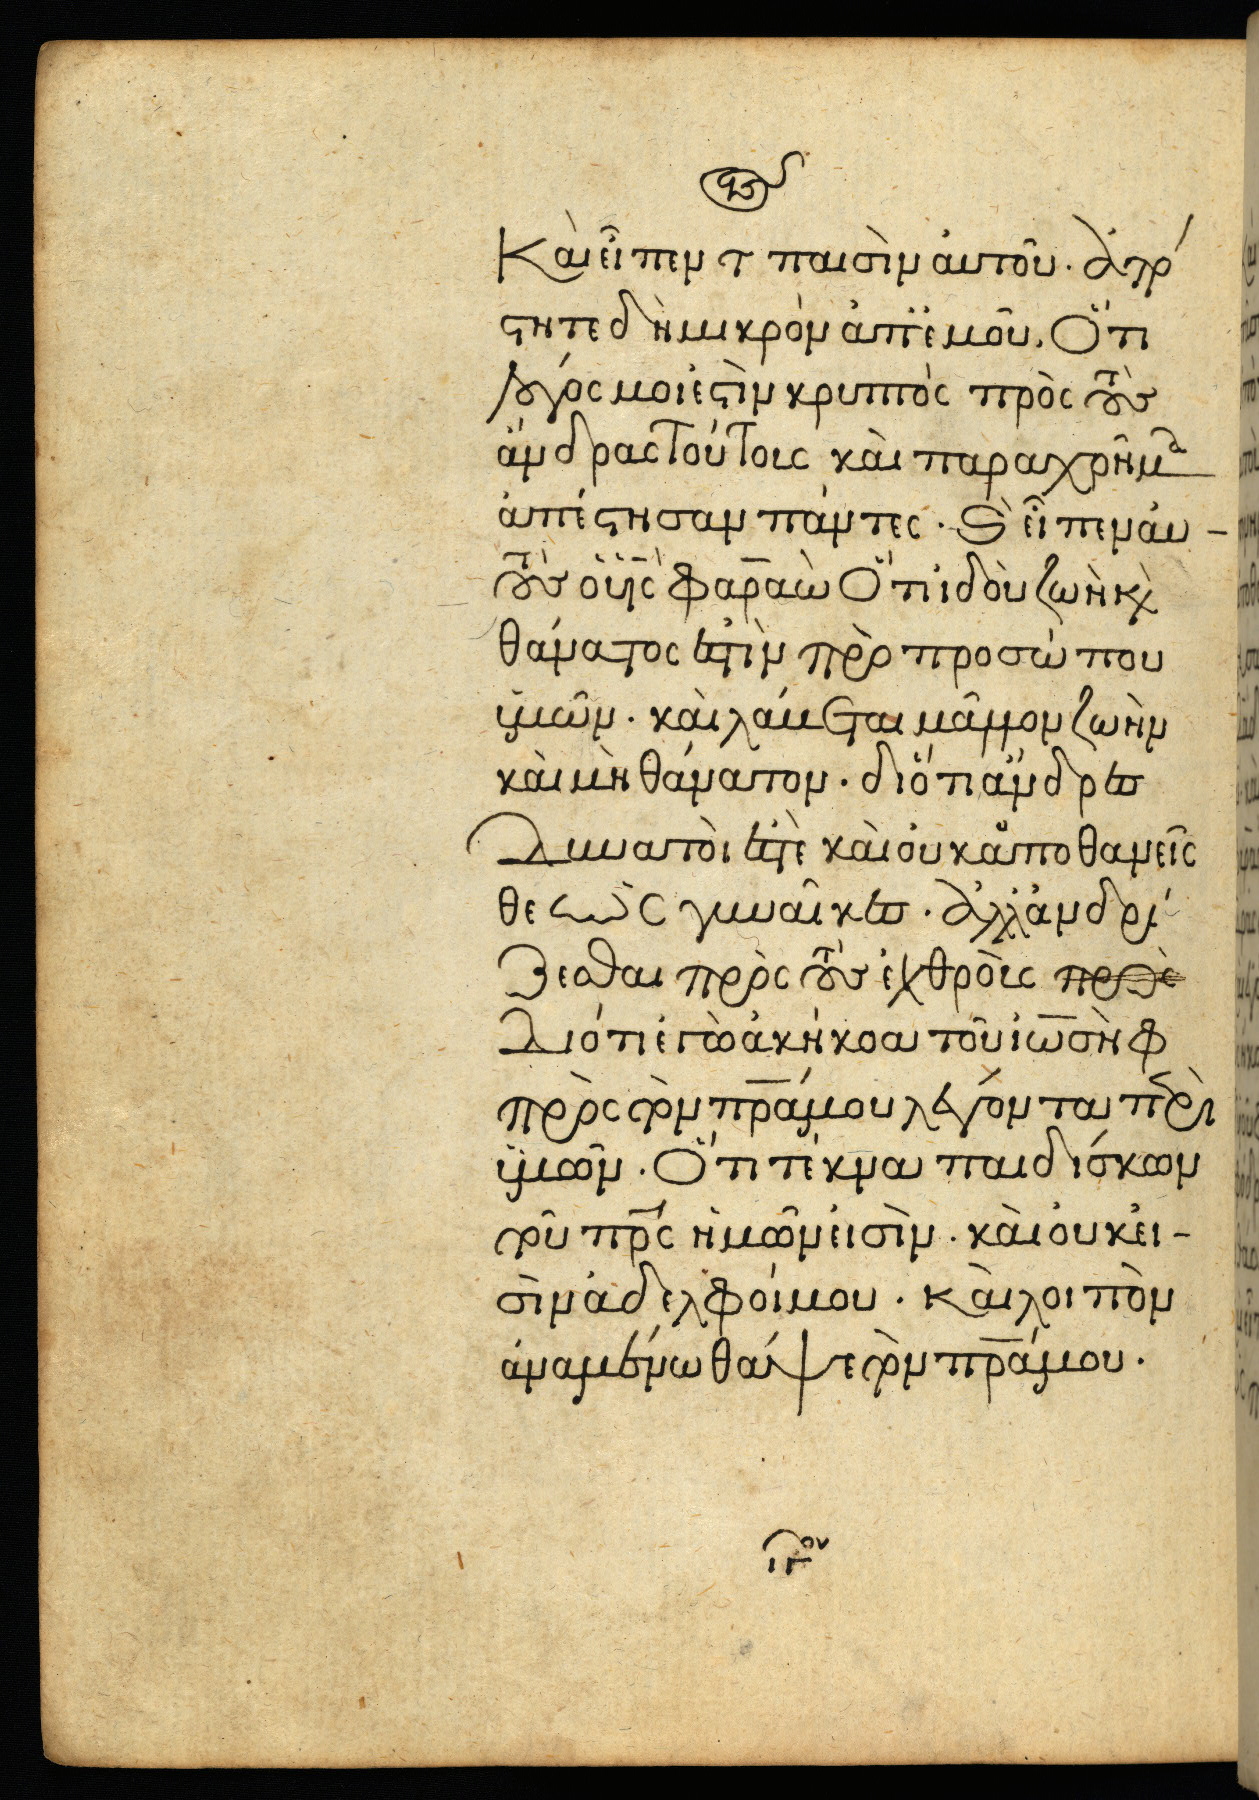 Ϟϛ
Καὶ εἶπεν τ παισὶν αὐτοῦ. ἀπό
στητε δὴ μικρὸν ἀπ' ἐμοῦ. Ὅτι
λόγος μοι ἐστὶν κρυπτὸς πρὸς τοὺς
ἄνδρας τούτοις καὶ παραχρῆμα
ἀπέστησαν πάντες. Καὶ εἶπεν αὐ-
τοὺς ὁ υἱὸς φαραὼ Ὅτι ἰδοὺ ζωὴ κὶ
θάνατος ἐστὶν πρὸ προσώπου
ὑμῶν. καὶ λάβεται μᾶλλον ζωὴν
καὶ μὴ θάνατον. διότι ἄνδρες
Δυνατοὶ ἐστὲ καὶ οὐκ ἀποθανεῖσ
θε ὡς γυναῖκες. ἀλλ' ἀνδρί
ζεσθαι πρὸς τοὺς ἐχθροῖς
Διότι ἐγὼ ἀκήκοα τοῦ ἰωσὴφ
πρὸς τὸν πρά μου λέγοντα περὶ
ὑμῶν. Ὅτι τέκνα παιδίσκων
τοῦ πρς ἡμῶν εἰσὶν. καὶ οὐκ εἰ-
σὶν ἀδελφοί μου. Καὶ λοιπὸν
ἀναμένω θάψε τὸν πρά μου.
ιγον